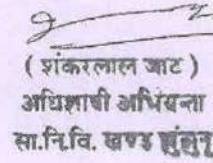 ( शंकरलाल जाट )
अधिशाषी अभियन्ता
सा.नि.वि. खण्ड झुंझुनू